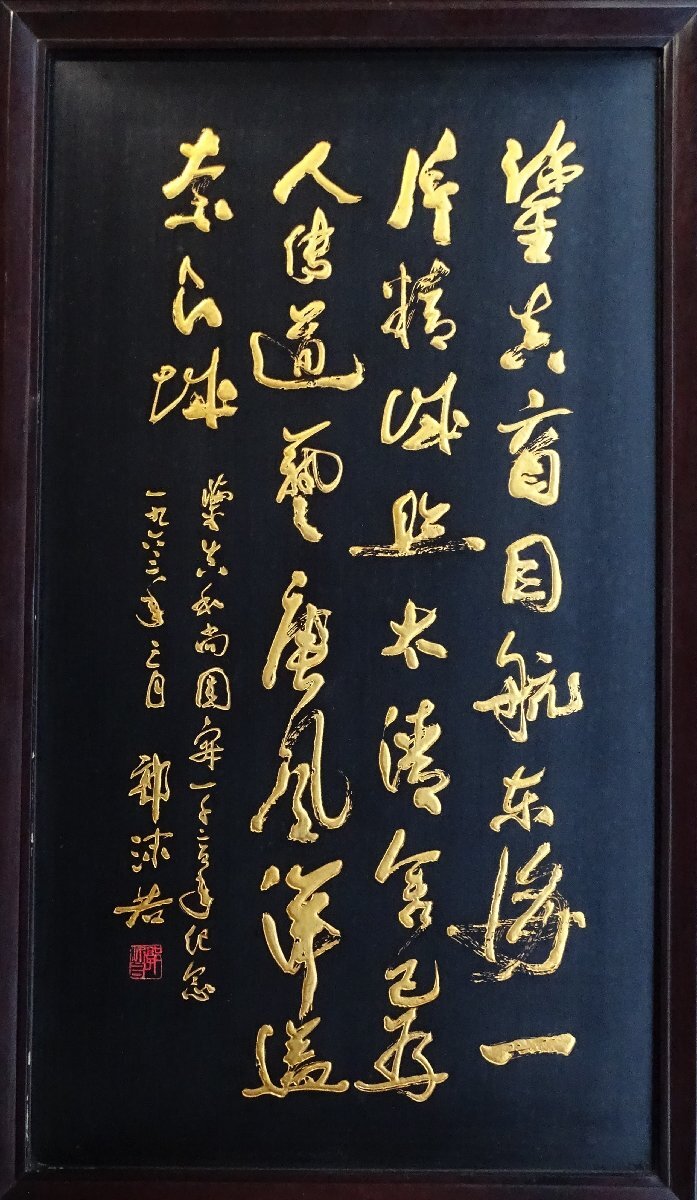 鑒真盲目航东海一
片精诚照太清舍己为
人传道艺唐风洋溢
奈良城
鉴真和尚圆寂一千二百年纪念
一九六三年三月
郭沫若